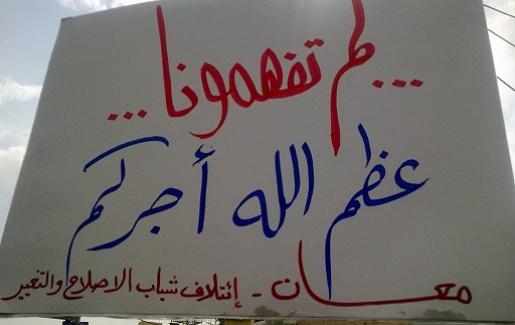 ... لم تفهمونا ...
عظم الله أجركم
معــان - إئتلاف شباب الاصلاح والتغيير